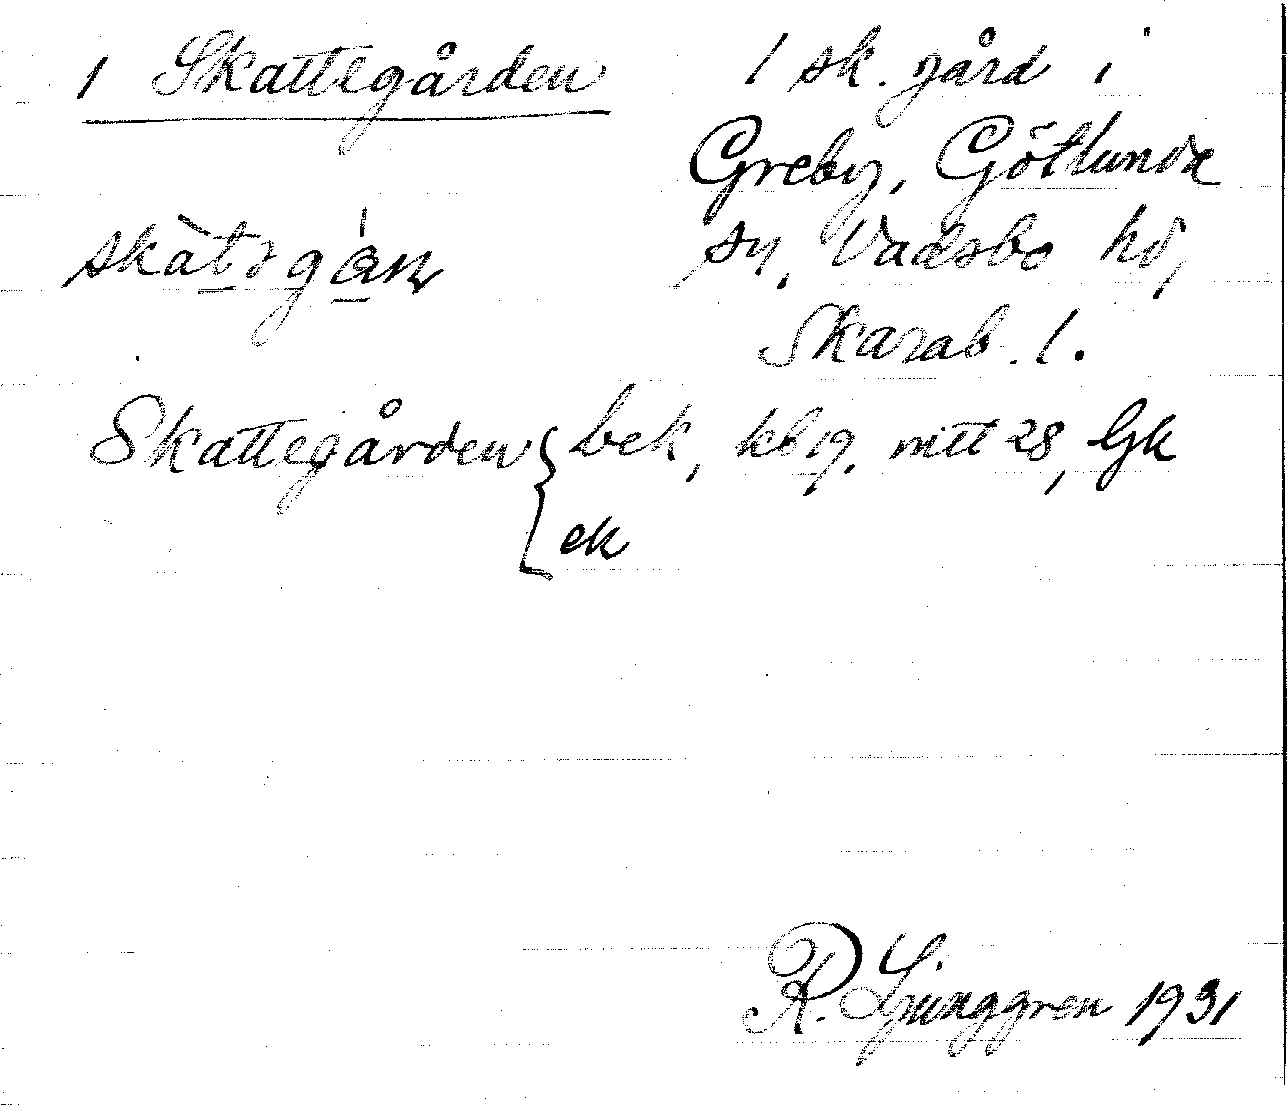 1 Skattegården
1 sk. gård i
Greby, Götlunda
sn, Vadsbo hd,
Skarab. l.
Skattegården { bek, kb 19, mtl 28, Gk
ek
R. Ljunggren 1931